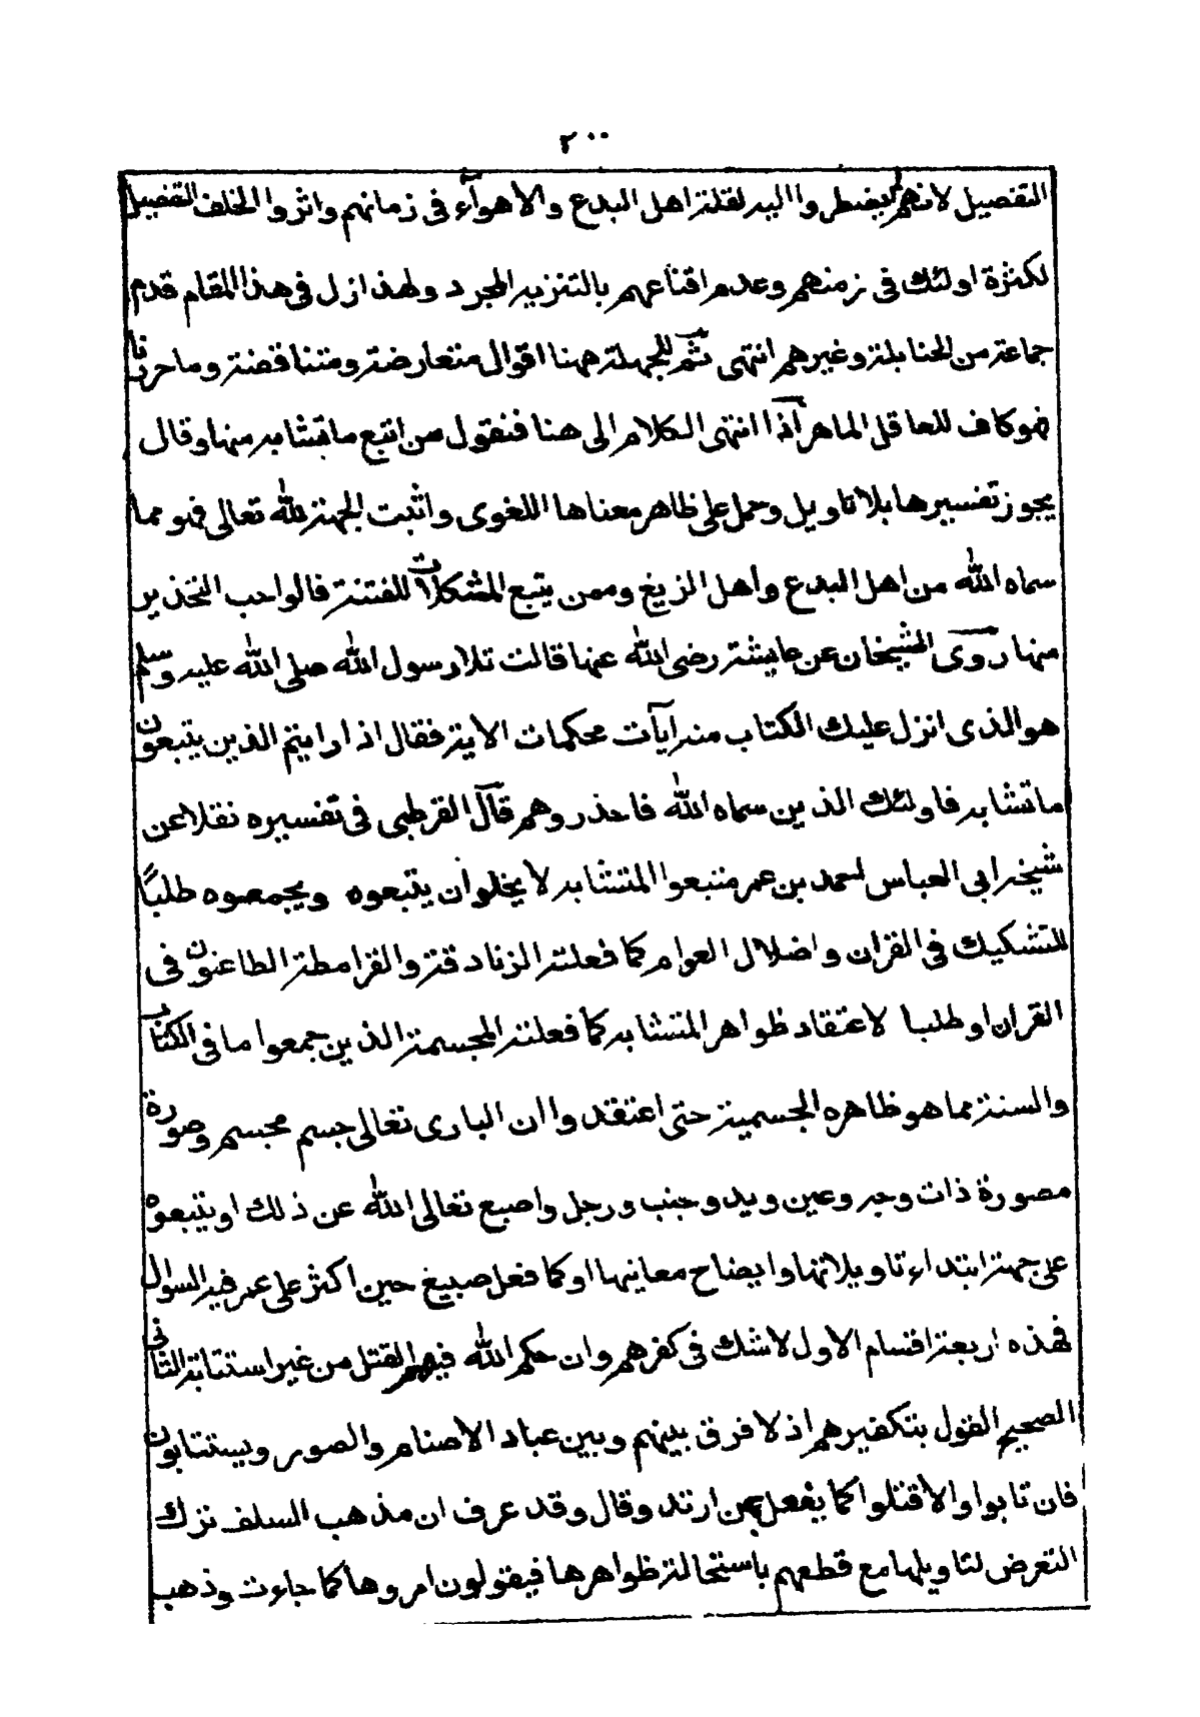 ٢٠٠
التفصيل لانهم لم يضطروا اليه لقلة اهل البدع والاهوآء فى زمانهم واثروا الخلف التفصيل
لكثرة اولئك فى زمنهم وعدم اقناعهم بالتنزيه المجرد ولهذا زل فى هذا المقام قدم
جماعة من الحنابلة وغيرهم انتهى ثم للجهلة ههنا اقوال متعارضة ومتناقضة وما حررنا
فهو كاف للعاقل الماهر اذا انتهى الكلام الى هنا فنقول من اتبع ما تشابه منها وقال
يجوز تفسيرها بلا تاويل وحمل على ظاهر معناها اللغوى واثبت الجهة لله تعالى فهو مما
سماه الله من اهل البدع واهل الزيغ وممن يتبع المشكلات للفتنة فالواجب التحذير
منها روى الشيخان عن عايشة رضى الله عنها قالت تلا رسول الله صلى الله عليه وسلم
هو الذى انزل عليك الكتاب منه آيات محكمات الاية فقال اذا رايتم الذين يتبعون
ما تشابه فاولئك الذين سماه الله فاحذروهم قال القرطبى فى تفسيره نقلا عن
شيخه ابى العباس احمد بن عمر متبعوا المتشابه لا يخلو ان يتبعوه ويجمعوه طلبًا
للتشكيك فى القران واضلال العوام كما فعلته الزنادقة والقرامطة الطاعنون فى
القران او طلبا لاعتقاد ظواهر المتشابه كما فعلته المجسمة الذين جمعوا ما فى الكتاب
والسنة مما هو ظاهره الجسمية حتى اعتقدوا ان البارى تعالى جسم مجسم وصورة
مصورة ذات وجه وعين ويد وجنب ورجل واصبع تعالى الله عن ذلك او يتبعوه
على جهة ابتداء تاويلاتها وايضاح معانيها او كما فعل صبيغ حين اكثر على عمر فيه السوال
فهذه اربعة اقسام الاول لا شك فى كفرهم وان حكم الله فيهم القتل من غير استتابة الثانى
الصحيح القول بتكفيرهم اذ لا فرق بينهم وبين عباد الاصنام والصور ويستتابون
فان تابوا والا قتلوا كما يفعل بمن ارتد وقال وقد عرف ان مذهب السلف ترك
التعرض لتاويلها مع قطعهم باستحالة ظواهرها فيقولون امروها كما جاءت وذهب